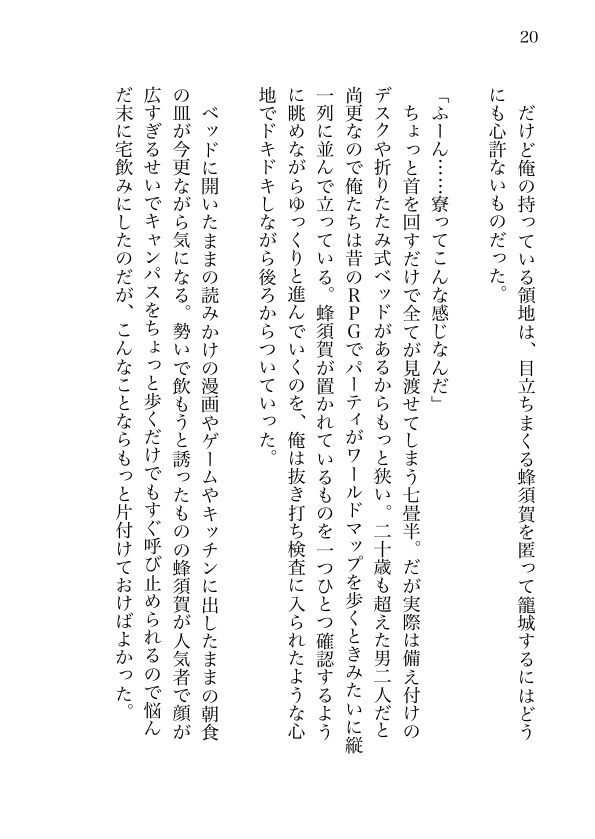 20
　だけど俺の持っている領地は、目立ちまくる蜂須賀を匿って籠城するにはどう
にも心許ないものだった。
「ふーん……寮ってこんな感じなんだ」
　ちょっと首を回すだけで全てが見渡せてしまう七畳半。だが実際は備え付けの
デスクや折りたたみ式ベッドがあるからもっと狭い。二十歳も超えた男二人だと
尚更なので俺たちは昔のＲＰＧでパーティがワールドマップを歩くときみたいに縦
一列に並んで立っている。蜂須賀が置かれているものを一つひとつ確認するよう
に眺めながらゆっくりと進んでいくのを、俺は抜き打ち検査に入られたような心
地でドキドキしながら後ろからついていった。
　ベッドに開いたままの読みかけの漫画やゲームやキッチンに出したままの朝食
の皿が今更ながら気になる。勢いで飲もうと誘ったものの蜂須賀が人気者で顔が
広すぎるせいでキャンパスをちょっと歩くだけでもすぐ呼び止められるので悩ん
だ末に宅飲みにしたのだが、こんなことならもっと片付けておけばよかった。